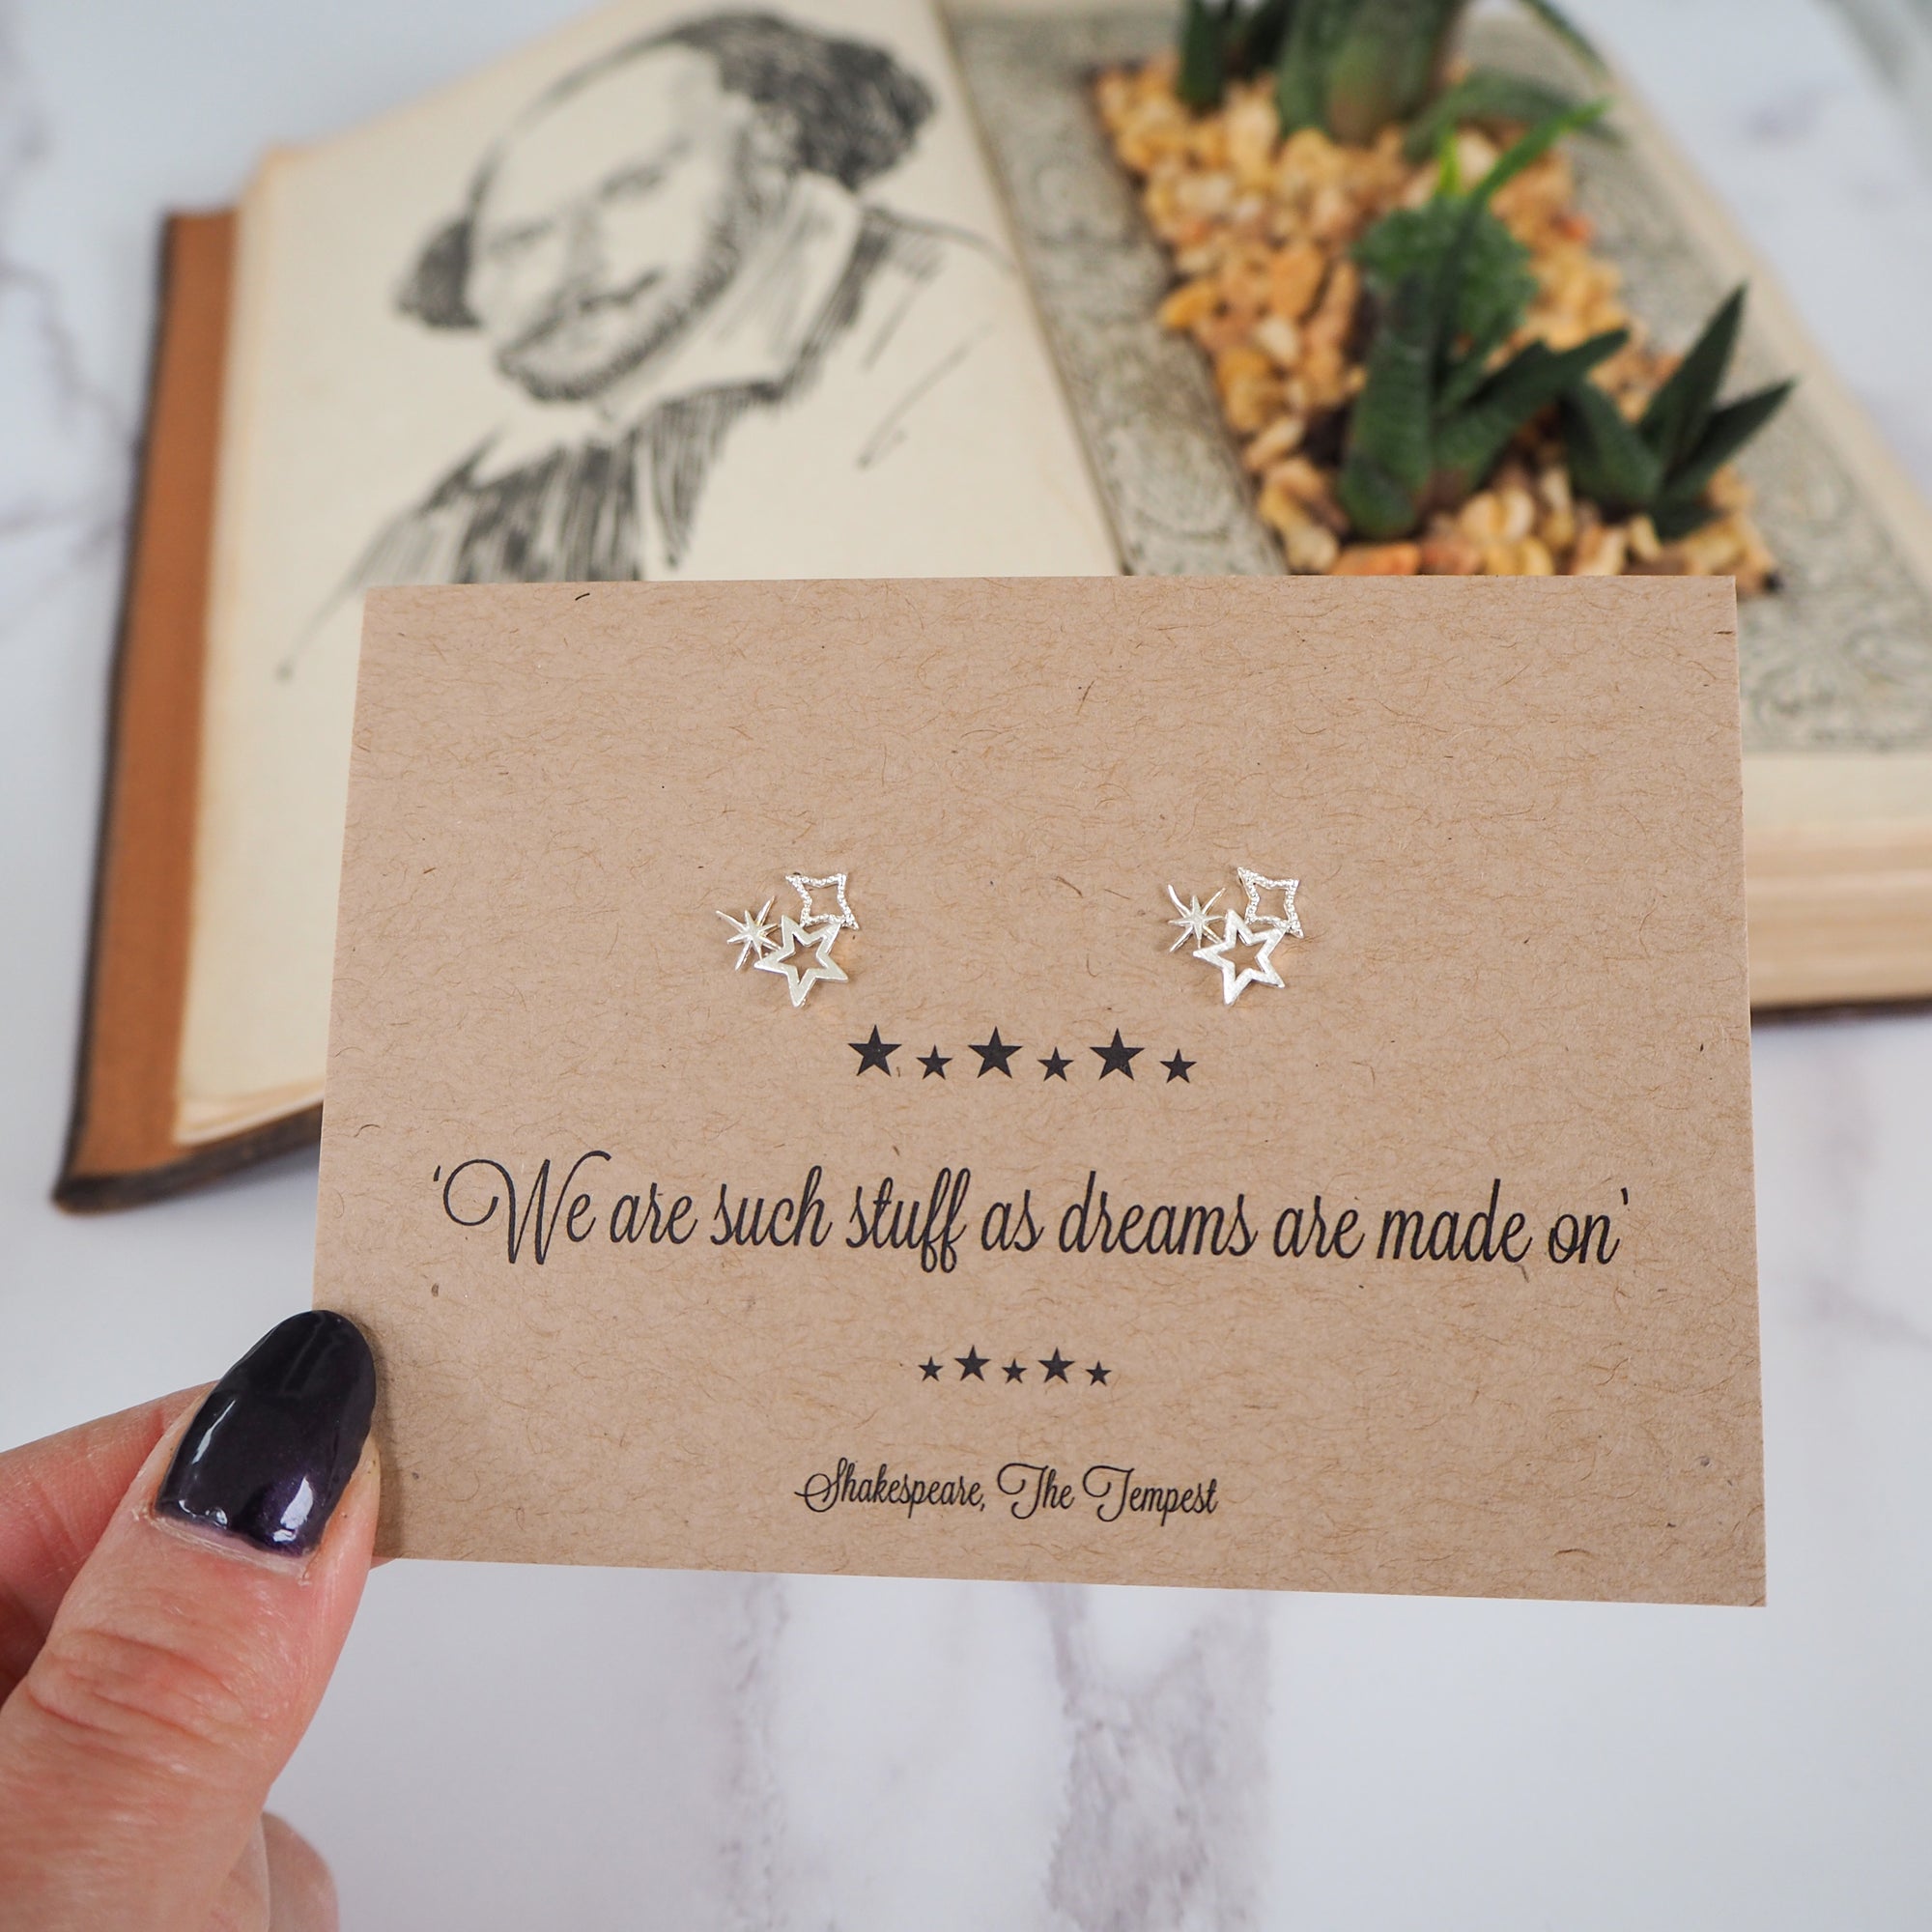 ‘We are such stuff as dreams are made on’
Shakespeare, The Tempest